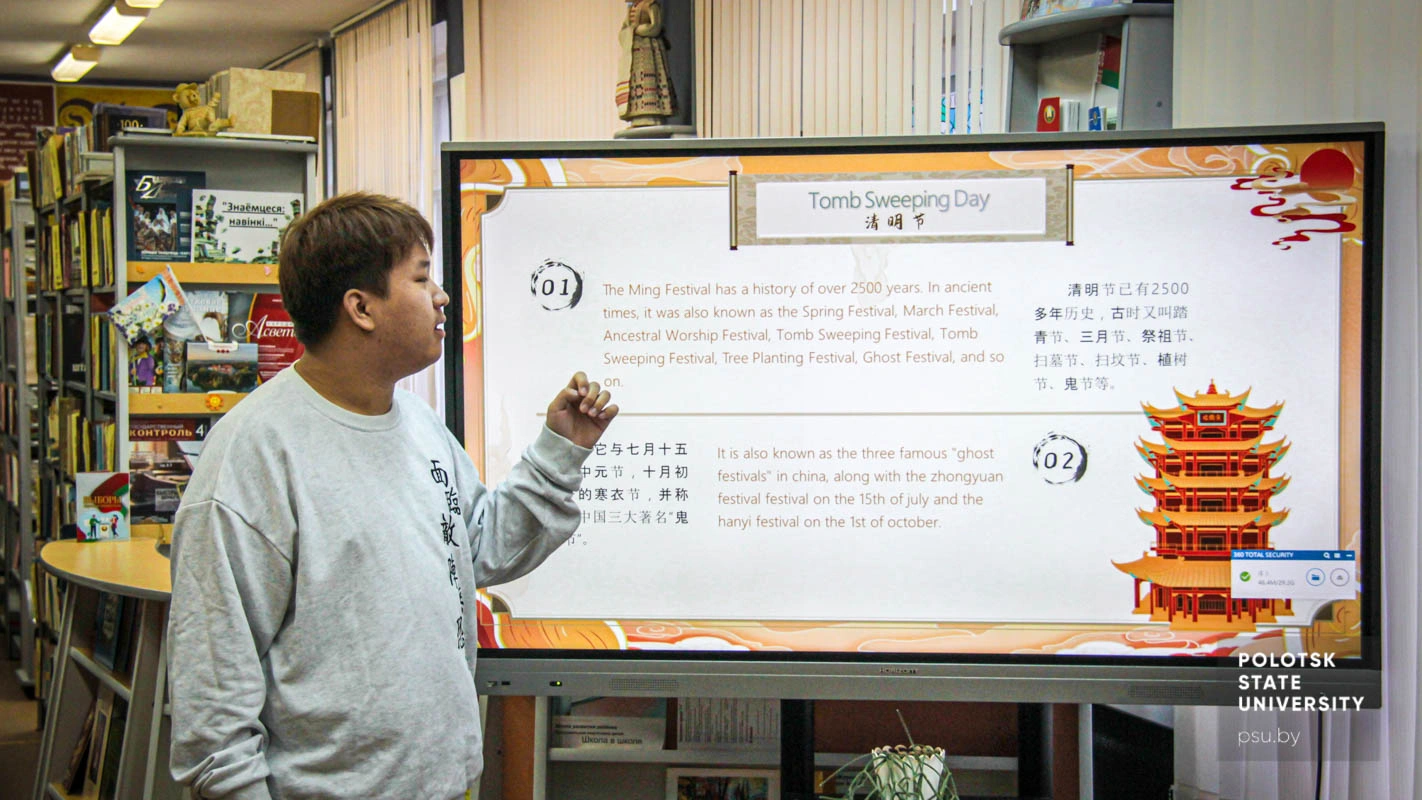 Tomb Sweeping Day
清明节
01
The Ming Festival has a history of over 2500 years. In ancient
times, it was also known as the Spring Festival, March Festival,
Ancestral Worship Festival, Tomb Sweeping Festival, Tomb
Sweeping Festival, Tree Planting Festival, Ghost Festival, and so
on.
清明节已有2500
多年历史，古时又叫踏
青节、三月节、祭祖节、
扫墓节、扫坟节、植树
节、鬼节等。
它与七月十五
中元节，十月初
的寒衣节，并称
中国三大著名"鬼
节"。
It is also known as the three famous "ghost
festivals" in china, along with the zhongyuan
festival festival on the 15th of july and the
hanyi festival on the 1st of october.
02
360 TOTAL SECURITY
"Знаёмцеся:
навінкі..."
КОНТРОЛЬ 4
面臨敵陣
Школа в школе
POLOTSK
STATE
UNIVERSITY
psu.by